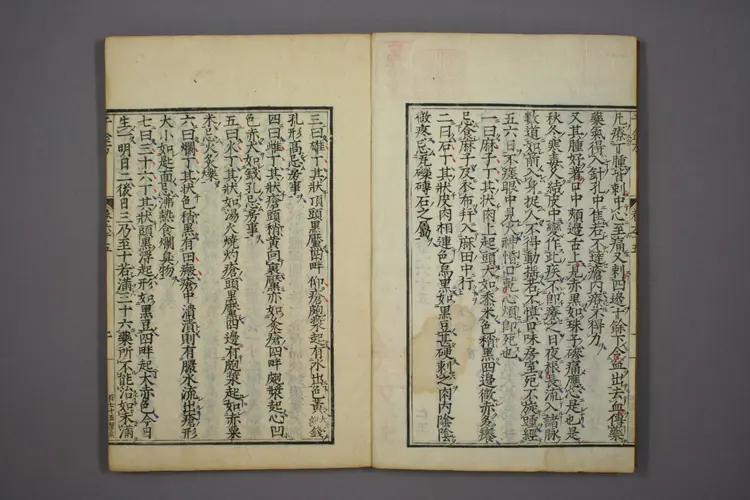 凡療丁腫皆刺中心至痛又刺四邊十餘下令血出去血傅藥
藥氣得入針孔中佳若不達瘡內療不得力
又其腫好著口中頰邊舌上見赤黑如珠子磣痛應心是也是
秋冬寒毒久結皮中變作此疾不即療之日夜根長流入諸脉
數道如箭入身捉人不得動搖若不慎口味房室死不旋踵經
五六日不瘥眼中見火神惛口乾心煩即死也
一曰麻子丁其狀肉上起頭大如黍米色稍黑四邊微赤多癢
忌食麻子及衣布拜入麻田中行
二曰石丁其狀皮肉相連色烏黑如黑豆甚硬刺之肉內陰陰
微疼忌瓦礫磚石之屬
三曰雄丁其狀頂頭黑黶四畔仰瘡皰漿起有水出色黃大如錢
孔形高忌房事
四曰雌丁其狀瘡頭稍黃向裏黶亦如灸瘡四畔皰漿起心凹
色赤大如錢孔忌房事
五曰火丁其狀如湯火燒灼瘡頭黑黶四邊有皰漿起如赤粟
米忌火灸爍
六曰爛丁其狀色稍黑有白瘢瘡中潰潰則有膿水流出瘡形
大小如匙面忌沸熱食爛臭物
七曰三十六丁其狀頭黑浮起形如黑豆四畔起大赤色今日
生一明日二後日三乃至十若滿三十六藥所不能治如未滿